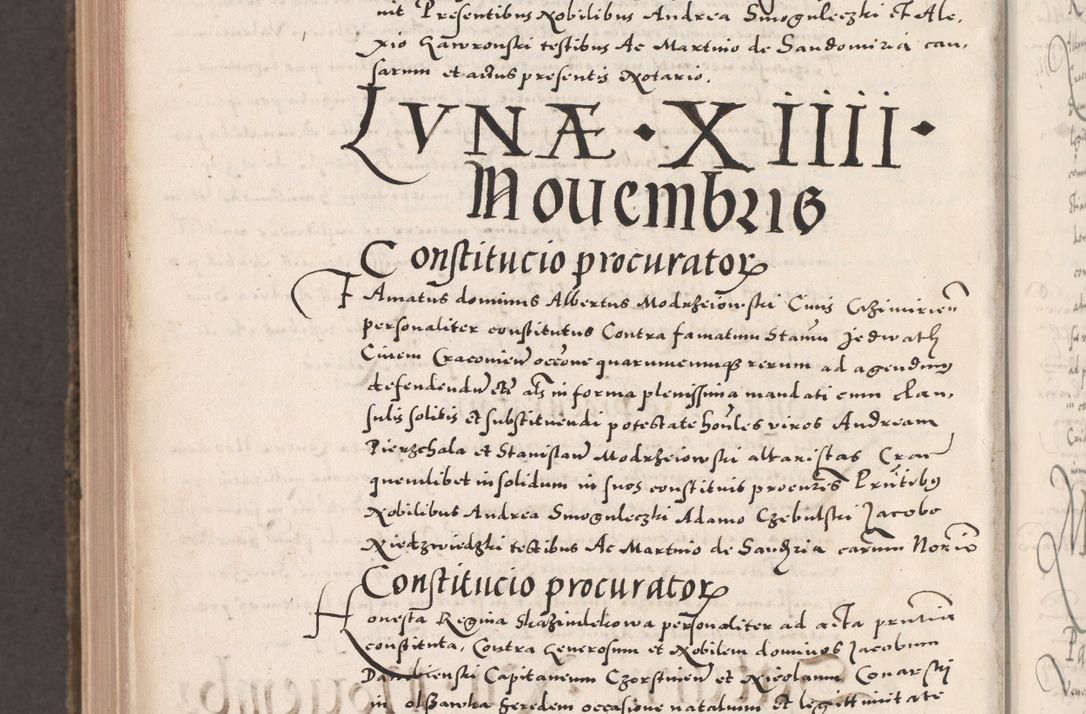 nit Presentibus Nobilibus Andrea Smoguleczki et Ale,
xio Gawronski testibus Ac Martino de Sandomiria cau,
sarum et actus presentis Notario.
LVNÆ · XIIII ·
Nouembris
Constitucio procurator
Famatus dominus Albertus Modrzeiowski Ciuis Cazimirien
personaliter constitutus Contra famatum Stanu Jedwath
Ciuem Cracouien occone quarumcumque rerum ad agendum
defendendu etc als in forma plenissima mandati cum clau,
sulis solitis et substituendi potestate honles viros Andream
Pierzchala et Stanislau Modrzeiowski altaristas Crac
quemlibet in solidum in suos constituit procures Pntibus
Nobilibus Andrea Smoguleczki Adamo Czebulski Jacobo
Niedzwiedzki testibus Ac Martino de Sandria carum Norio
Constitucio procurator
Honesta Regina Skazindekowa personaliter ad acta prntia
constituta, Contra Generosum et Nobilem dominos Jacobum
Dambienski Capitaneum Czorstinen et Nicolaum Conarski
in olssawka heredem occasione natalium et legittimitate